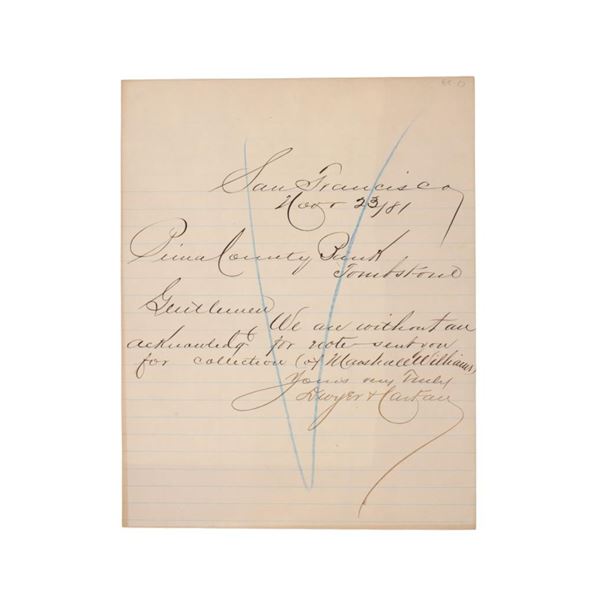 San Francisco
Nov 23/81
Pima County Bank
Tombstone
Gentlemen
We are without an
acknowledgt for note sent you
for collection (of Marshall Williams)
Yours very Truly
Dwyer &